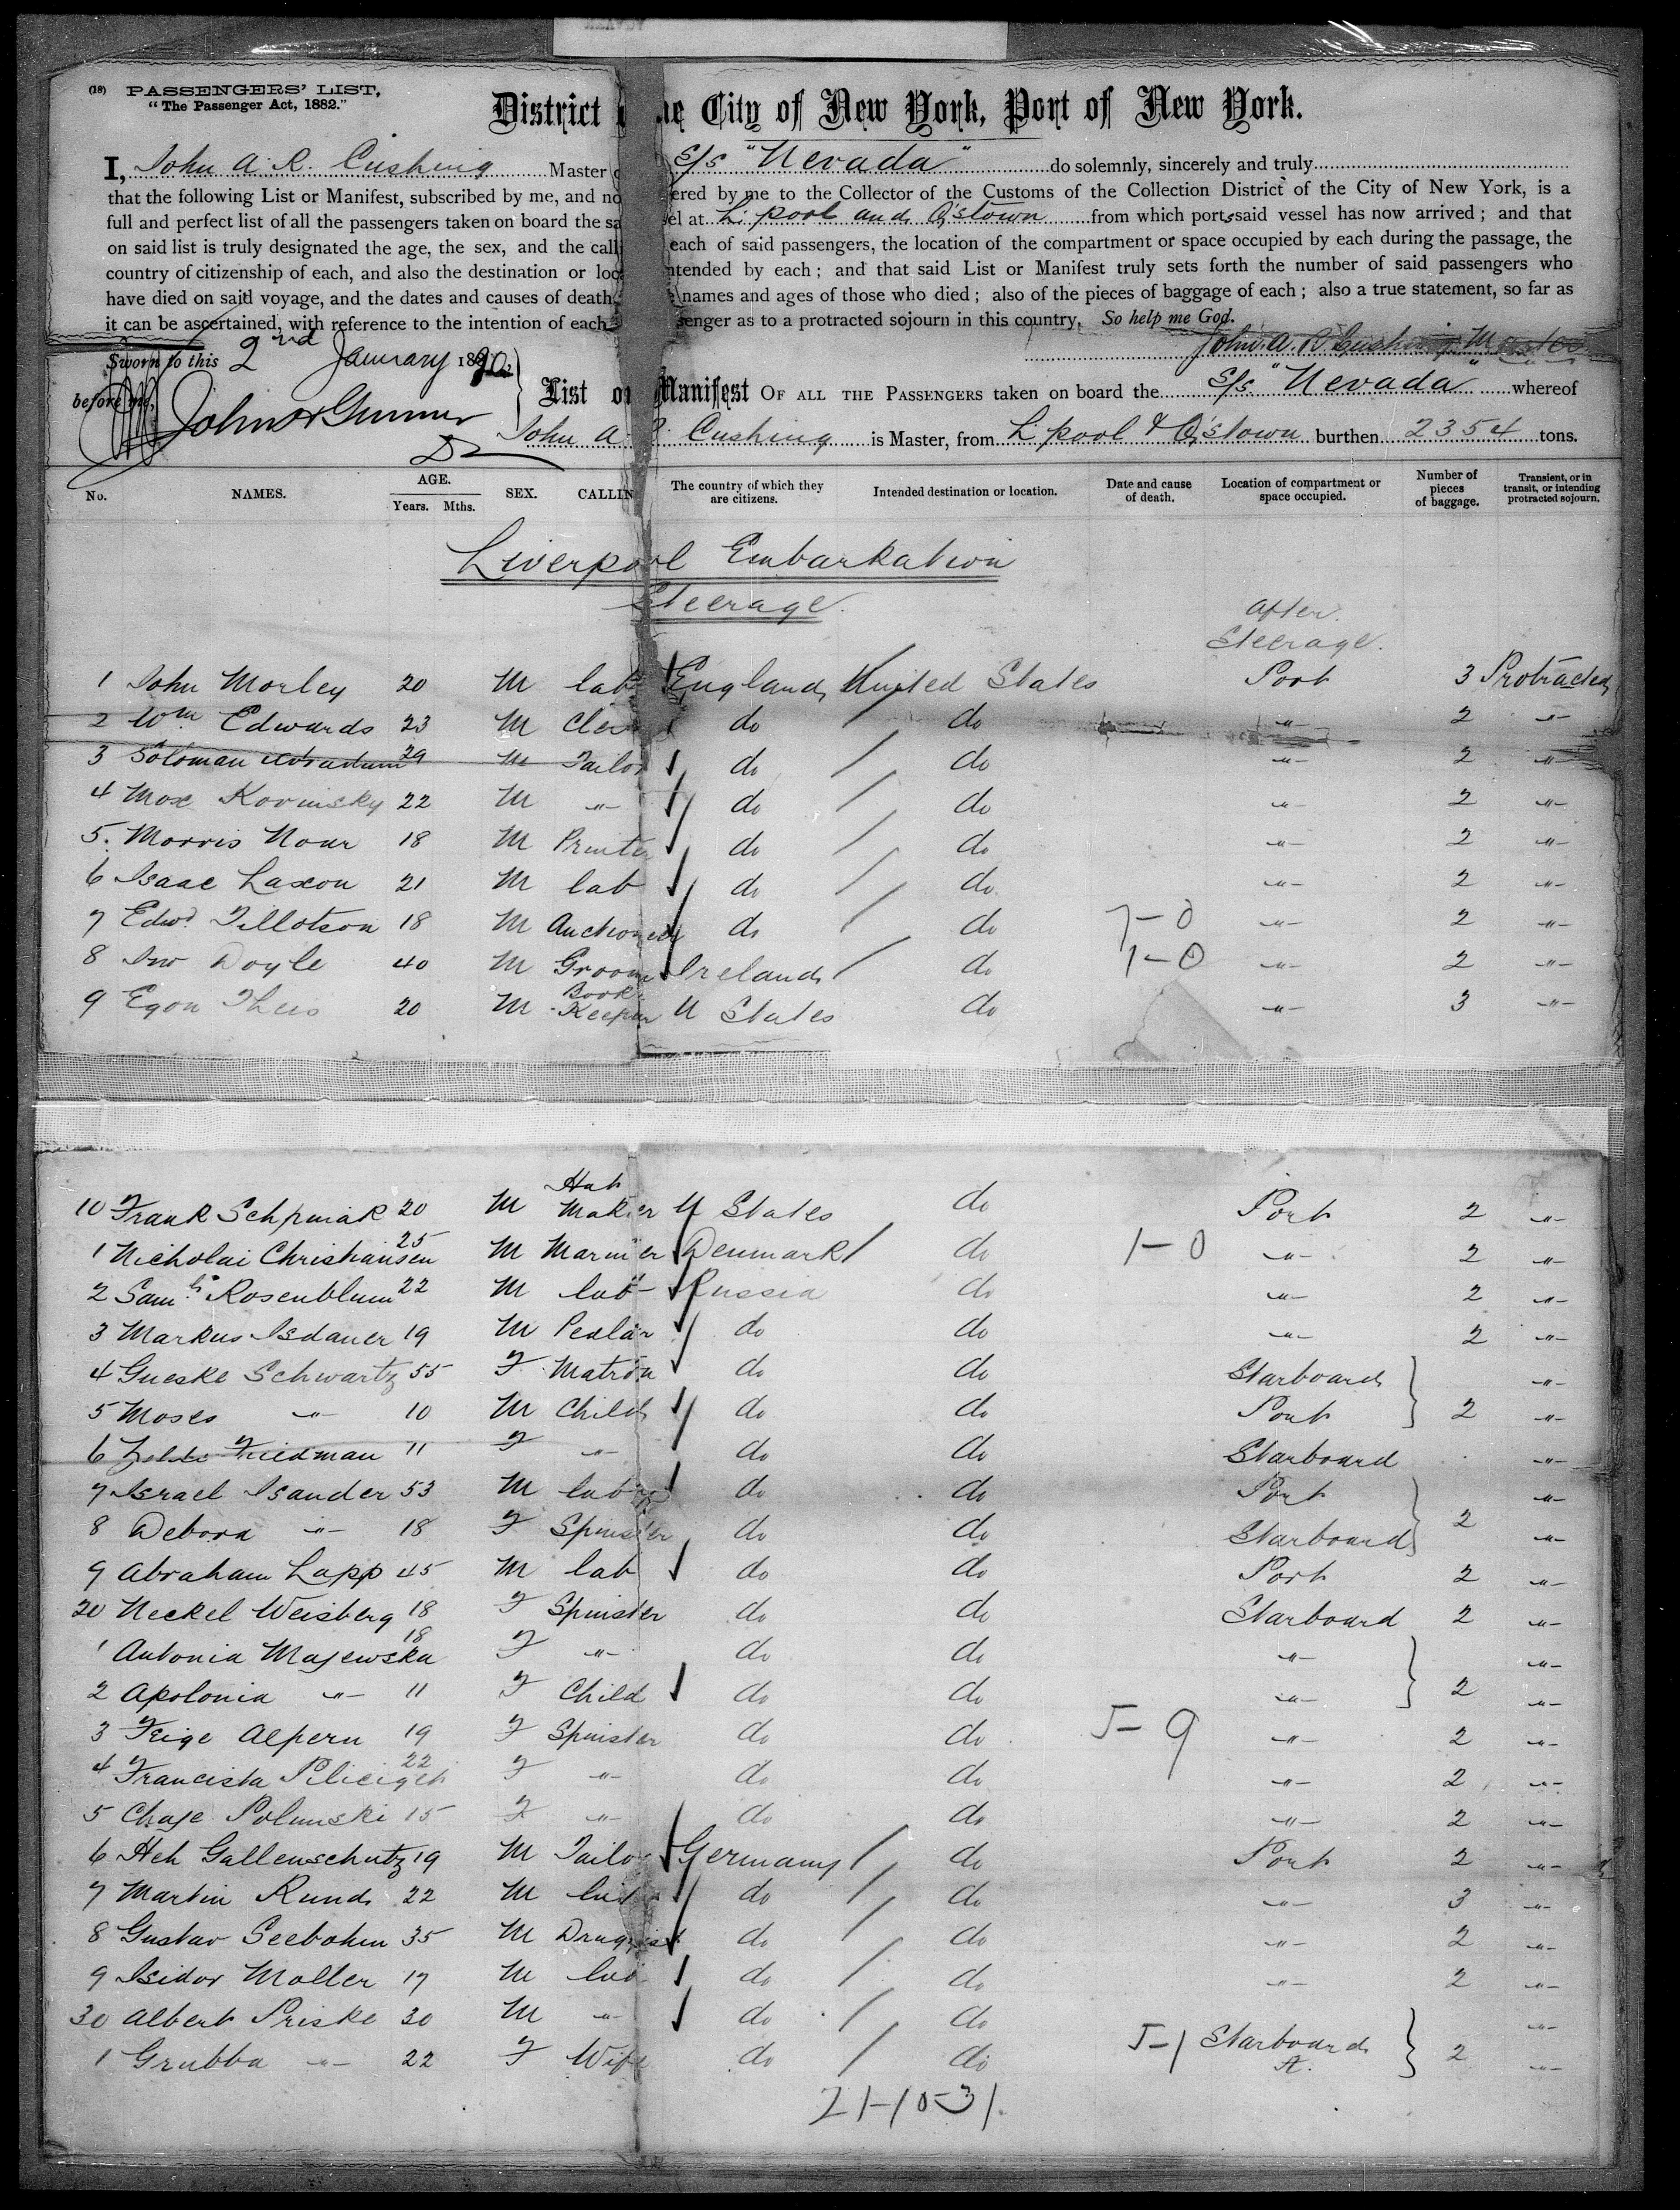 (18) PASSENGERS' LIST,
"The Passenger Act, 1882."
District he City of New York, Port of New York.
I, John A. R. Cushing Master S/s "Nevada" do solemnly, sincerely and truly
that the following List or Manifest, subscribed by me, and ered by me to the Collector of the Customs of the Collection District of the City of New York, is a
full and perfect list of all the passengers taken on board the el at L'pool and Q'stown from which ports said vessel has now arrived; and that
on said list is truly designated the age, the sex, and the call each of said passengers, the location of the compartment or space occupied by each during the passage, the
country of citizenship of each, and also the destination or loc ntended by each; and that said List or Manifest truly sets forth the number of said passengers who
have died on said voyage, and the dates and causes of death, names and ages of those who died; also of the pieces of baggage of each; also a true statement, so far as
it can be ascertained, with reference to the intention of each senger as to a protracted sojourn in this country. So help me God.
John A. R. Cushing Master
Sworn to this 2nd January 1890
before me,
List or Manifest OF ALL THE PASSENGERS taken on board the S/s. "Nevada" whereof
John A. R. Cushing is Master, from L'pool & Q'stown burthen 2354 tons.
No. NAMES. AGE. Years. Mths. SEX. CALLIN The country of which they are citizens. Intended destination or location. Date and cause of death. Location of compartment or space occupied. Number of pieces of baggage. Transient, or in transit, or intending protracted sojourn.
Liverpool Embarkation
Steerage.
After
Steerage.
1 John Morley 20 M lab England United States Port 3 Protracted
2 Wm Edwards 23 M Cler do do -"- 2 -"-
3 Soloman 29 M Tailor do do -"- 2 -"-
4 Max Kovinsky 22 M -"- do do -"- 2 -"-
5. Morris Nour 18 M Printer do do -"- 2 -"-
6 Isaac Laxon 21 M lab do do -"- 2 -"-
7 Edwd Tillotson 18 M Auctioneer do do 7-0 -"- 2 -"-
8 Jno Doyle 40 M Groom Ireland do 1-0 -"- 2 -"-
9 Egon Theis 20 M Book Keeper U States do -"- 3 -"-
10 Frank Schpiniak 20 M Hat Maker U States do Port 2 -"-
1 Nicholai Christiansen 25 M Mariner Denmark do 1-0 -"- 2 -"-
2 Saml Rosenblum 22 M lab Russia do -"- 2 -"-
3 Markus Isdauer 19 M Pedlar do do -"- 2 -"-
4 Gueske Schwartz 55 F Matron do do Starboard -"-
5 Moses -"- 10 M Child do do Port 2 -"-
6 Friedman 11 F -"- do do Starboard -"-
7 Israel Isander 53 M lab do do Port -"-
8 Debora -"- 18 F Spinster do do Starboard 2 -"-
9 Abraham Lapp 45 M lab do do Port 2 -"-
20 Neckel Weisberg 18 F Spinster do do Starboard 2 -"-
1 Antonia Majewska 18 F -"- do do -"- -"-
2 Apolonia -"- 11 F Child do do -"- 2 -"-
3 Feige Alpern 19 F Spinster do do 5-9 -"- 2 -"-
4 Franciska 22 F -"- do do -"- 2 -"-
5 Chaje Polunski 15 F -"- do do -"- 2 -"-
6 Hch Gallenschutz 19 M Tailor Germany do Port 2 -"-
7 Martin Kund 22 M lab do do -"- 3 -"-
8 Gustav Seebohm 35 M Druggist do do -"- 2 -"-
9 Isidor Moller 17 M lab do do -"- 2 -"-
30 Albert Priske 30 M -"- do do -"-
1 Grubba -"- 22 F Wife do do 5-1 Starboard A. 2 -"-
21-10-31.